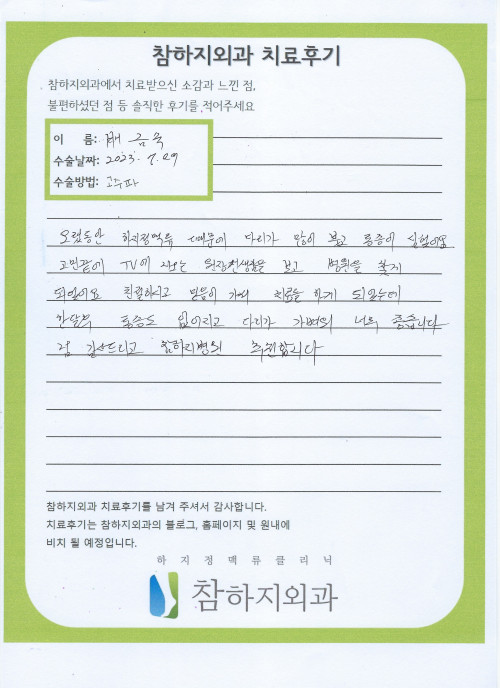 참하지외과 치료후기
참하지외과에서 치료받으신 소감과 느낀 점,
불편하셨던 점 등 솔직한 후기를 적어주세요
이 름: 금옥
수술날짜: 2023. 7. 29
수술방법: 고주파
오랫동안 하지정맥류 때문에 다리가 많이 붓고 통증이 심했어요
고민끝에 TV에 나오는 원장선생님을 보고 병원을 찾게
되었어요 친절하시고 믿음이 가서 치료를 하게 되었는데
한달후 통증도 없어지고 다리가 가벼워 너무 좋습니다
감사드리고 참하지병원 추천합니다
참하지외과 치료후기를 남겨 주셔서 감사합니다.
치료후기는 참하지외과의 블로그, 홈페이지 및 원내에
비치 될 예정입니다.
하지정맥류클리닉
참하지외과